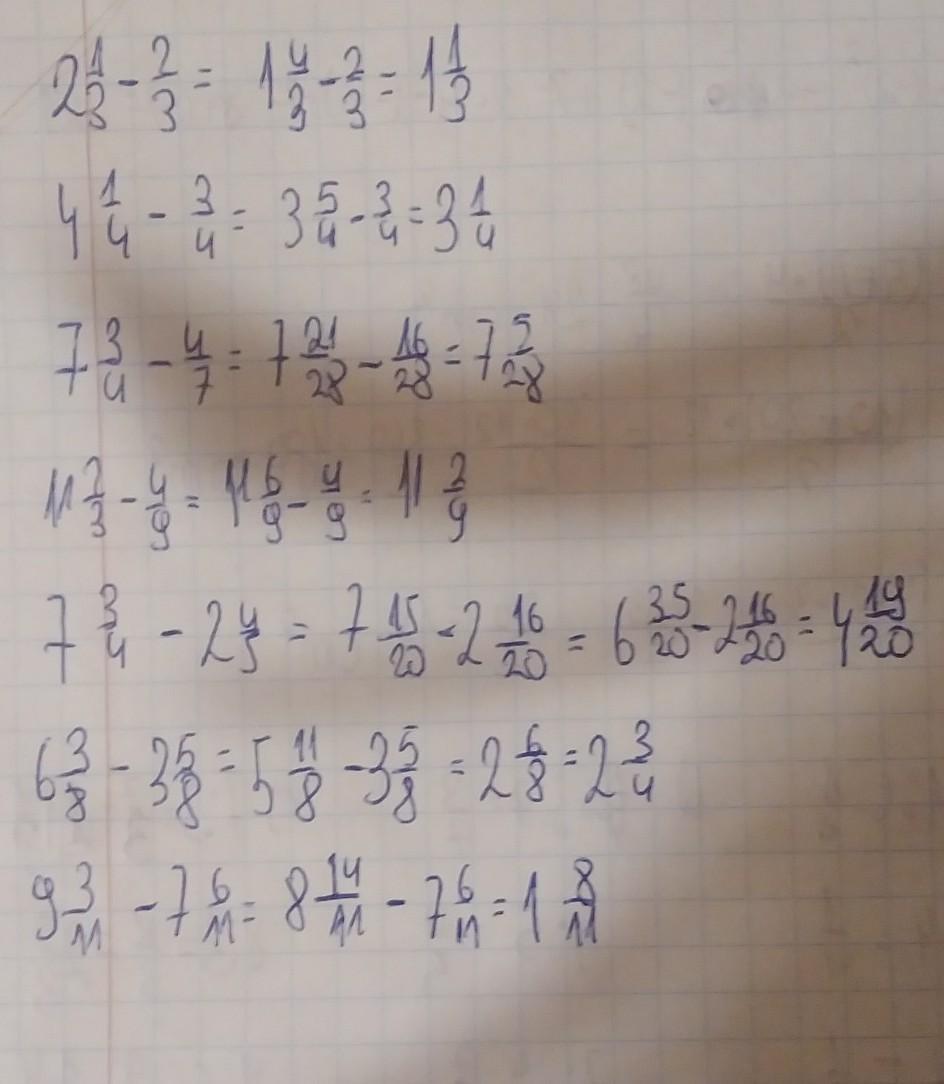 2 1/3 - 2/3 = 1 4/3 - 2/3 = 1 1/3
4 1/4 - 3/4 = 3 5/4 - 3/4 = 3 1/4
7 3/4 - 4/7 = 7 21/28 - 16/28 = 7 5/28
11 2/3 - 4/9 = 11 6/9 - 4/9 = 11 2/9
7 3/4 - 2 4/5 = 7 15/20 - 2 16/20 = 6 35/20 - 2 16/20 = 4 19/20
6 3/8 - 3 5/8 = 5 11/8 - 3 5/8 = 2 6/8 = 2 3/4
9 3/11 - 7 6/11 = 8 14/11 - 7 6/11 = 1 8/11